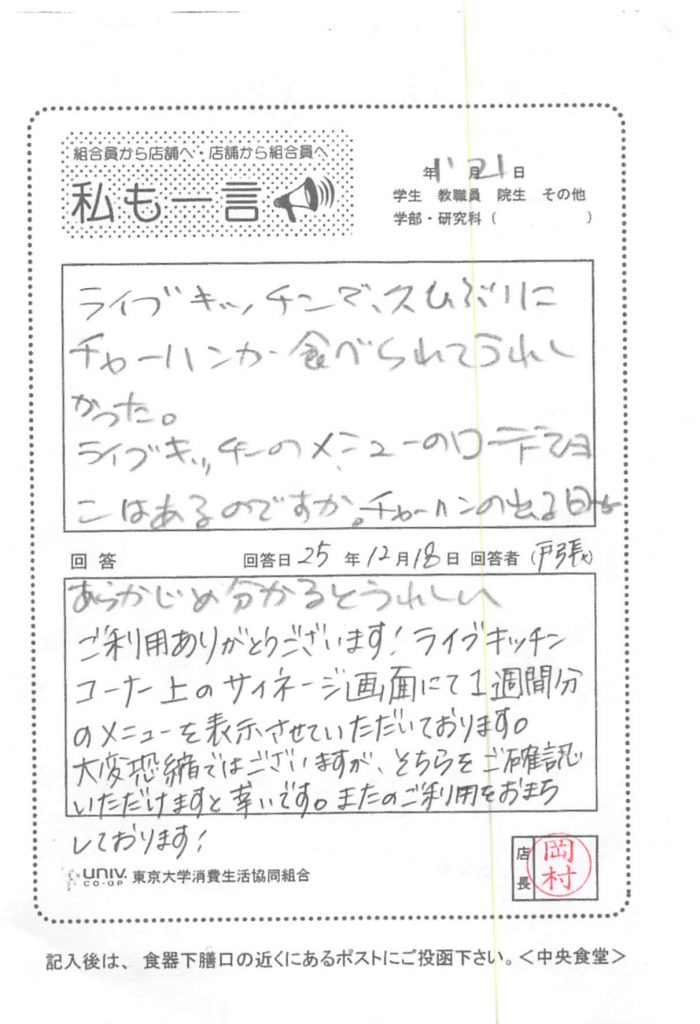 組合員から店舗へ・店舗から組合員へ
私も一言
年 11 月 21 日
学生 教職員 院生 その他
学部・研究科（ ）
ライブキッチンで、久しぶりに
チャーハンが食べられてうれし
かった。
ライブキッチンのメニューのローテーショ
ンはあるのですか。チャーハンの出る日を
回答 回答日 25 年 12 月 18 日 回答者（戸張）
あらかじめ分かるとうれしい
ご利用ありがとうございます！ライブキッチン
コーナー上のサイネージ画面にて1週間分
のメニューを表示させていただいております。
大変恐縮ではございますが、そちらをご確認
いただけますと幸いです。またのご利用をおまち
しております！
店長 岡村
UNIV. CO-OP 東京大学消費生活協同組合
記入後は、食器下膳口の近くにあるポストにご投函下さい。＜中央食堂＞